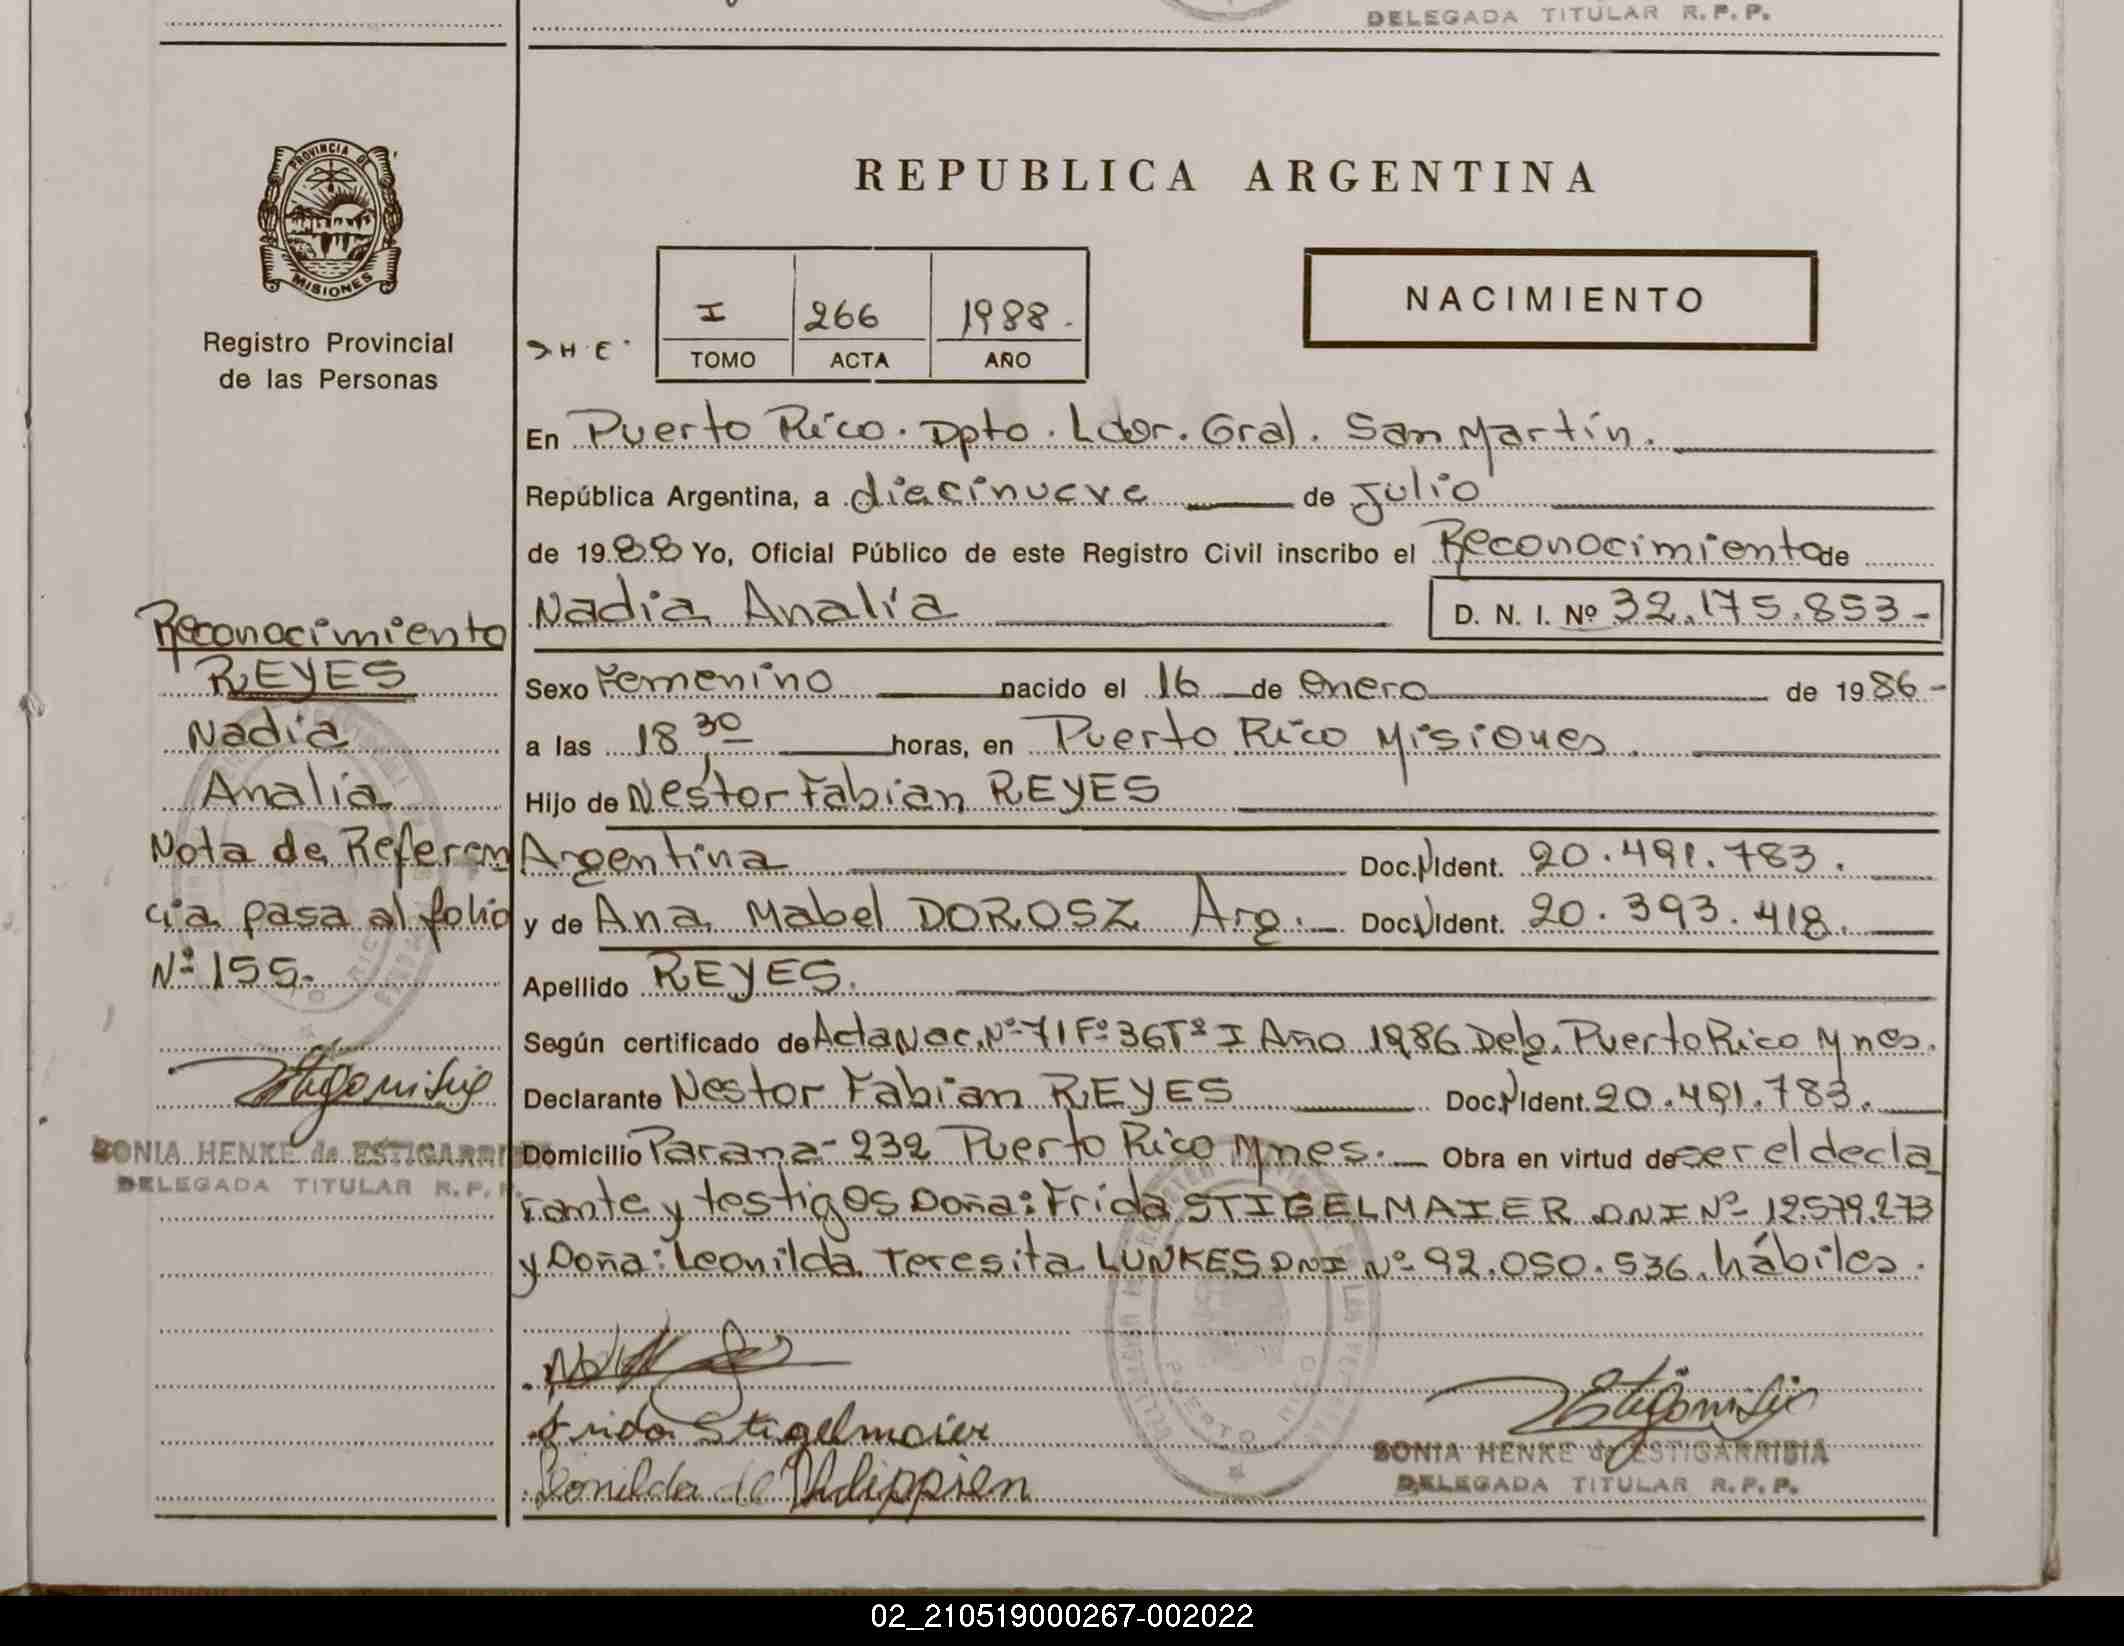 DELEGADA TITULAR R.P.P.
PROVINCIA DE
MISIONES
Registro Provincial
de las Personas
REPUBLICA ARGENTINA
I 266 1988.
TOMO ACTA AÑO
NACIMIENTO
En Puerto Rico. Dpto. Ldor. Gral. San Martín.
República Argentina, a diecinueve de Julio
de 1988 Yo, Oficial Público de este Registro Civil inscribo el Reconocimiento de
Nadia Analía D. N. I. Nº 32.175.853-
Sexo Femenino nacido el 16 de enero de 1986-
a las 18 30 horas, en Puerto Rico Misiones.
Hijo de Nestor Fabian REYES
Argentina Doc. Ident. 20.491.783.
y de Ana Mabel DOROSZ Arg. Doc. Ident. 20.393.418.
Apellido REYES.
Según certificado de Acta Nac. Nº 71 Fº 36 Tº I Año 1986 Deleg. Puerto Rico Mnes.
Declarante Nestor Fabian REYES Doc. Ident. 20.491.783.
Domicilio Parana- 232 Puerto Rico Mnes. Obra en virtud de ser el decla
rante y testigos Doña: Frida STIGELMAIER DNI Nº 12.579.273
y Doña: Leonilda Teresita LUNKES DNI Nº 92.050.536. hábiles.
Frida Stigelmaier
Leonilda de Philippsen
SONIA HENKE de ESTIGARRIBIA
DELEGADA TITULAR R.P.P.
Reconocimiento
REYES
Nadia
Analía
Nota de Referen
cia pasa al folio
Nº 155-
SONIA HENKE de ESTIGARRIBIA
DELEGADA TITULAR R.P.P.
PUERTO RICO
02_210519000267-002022